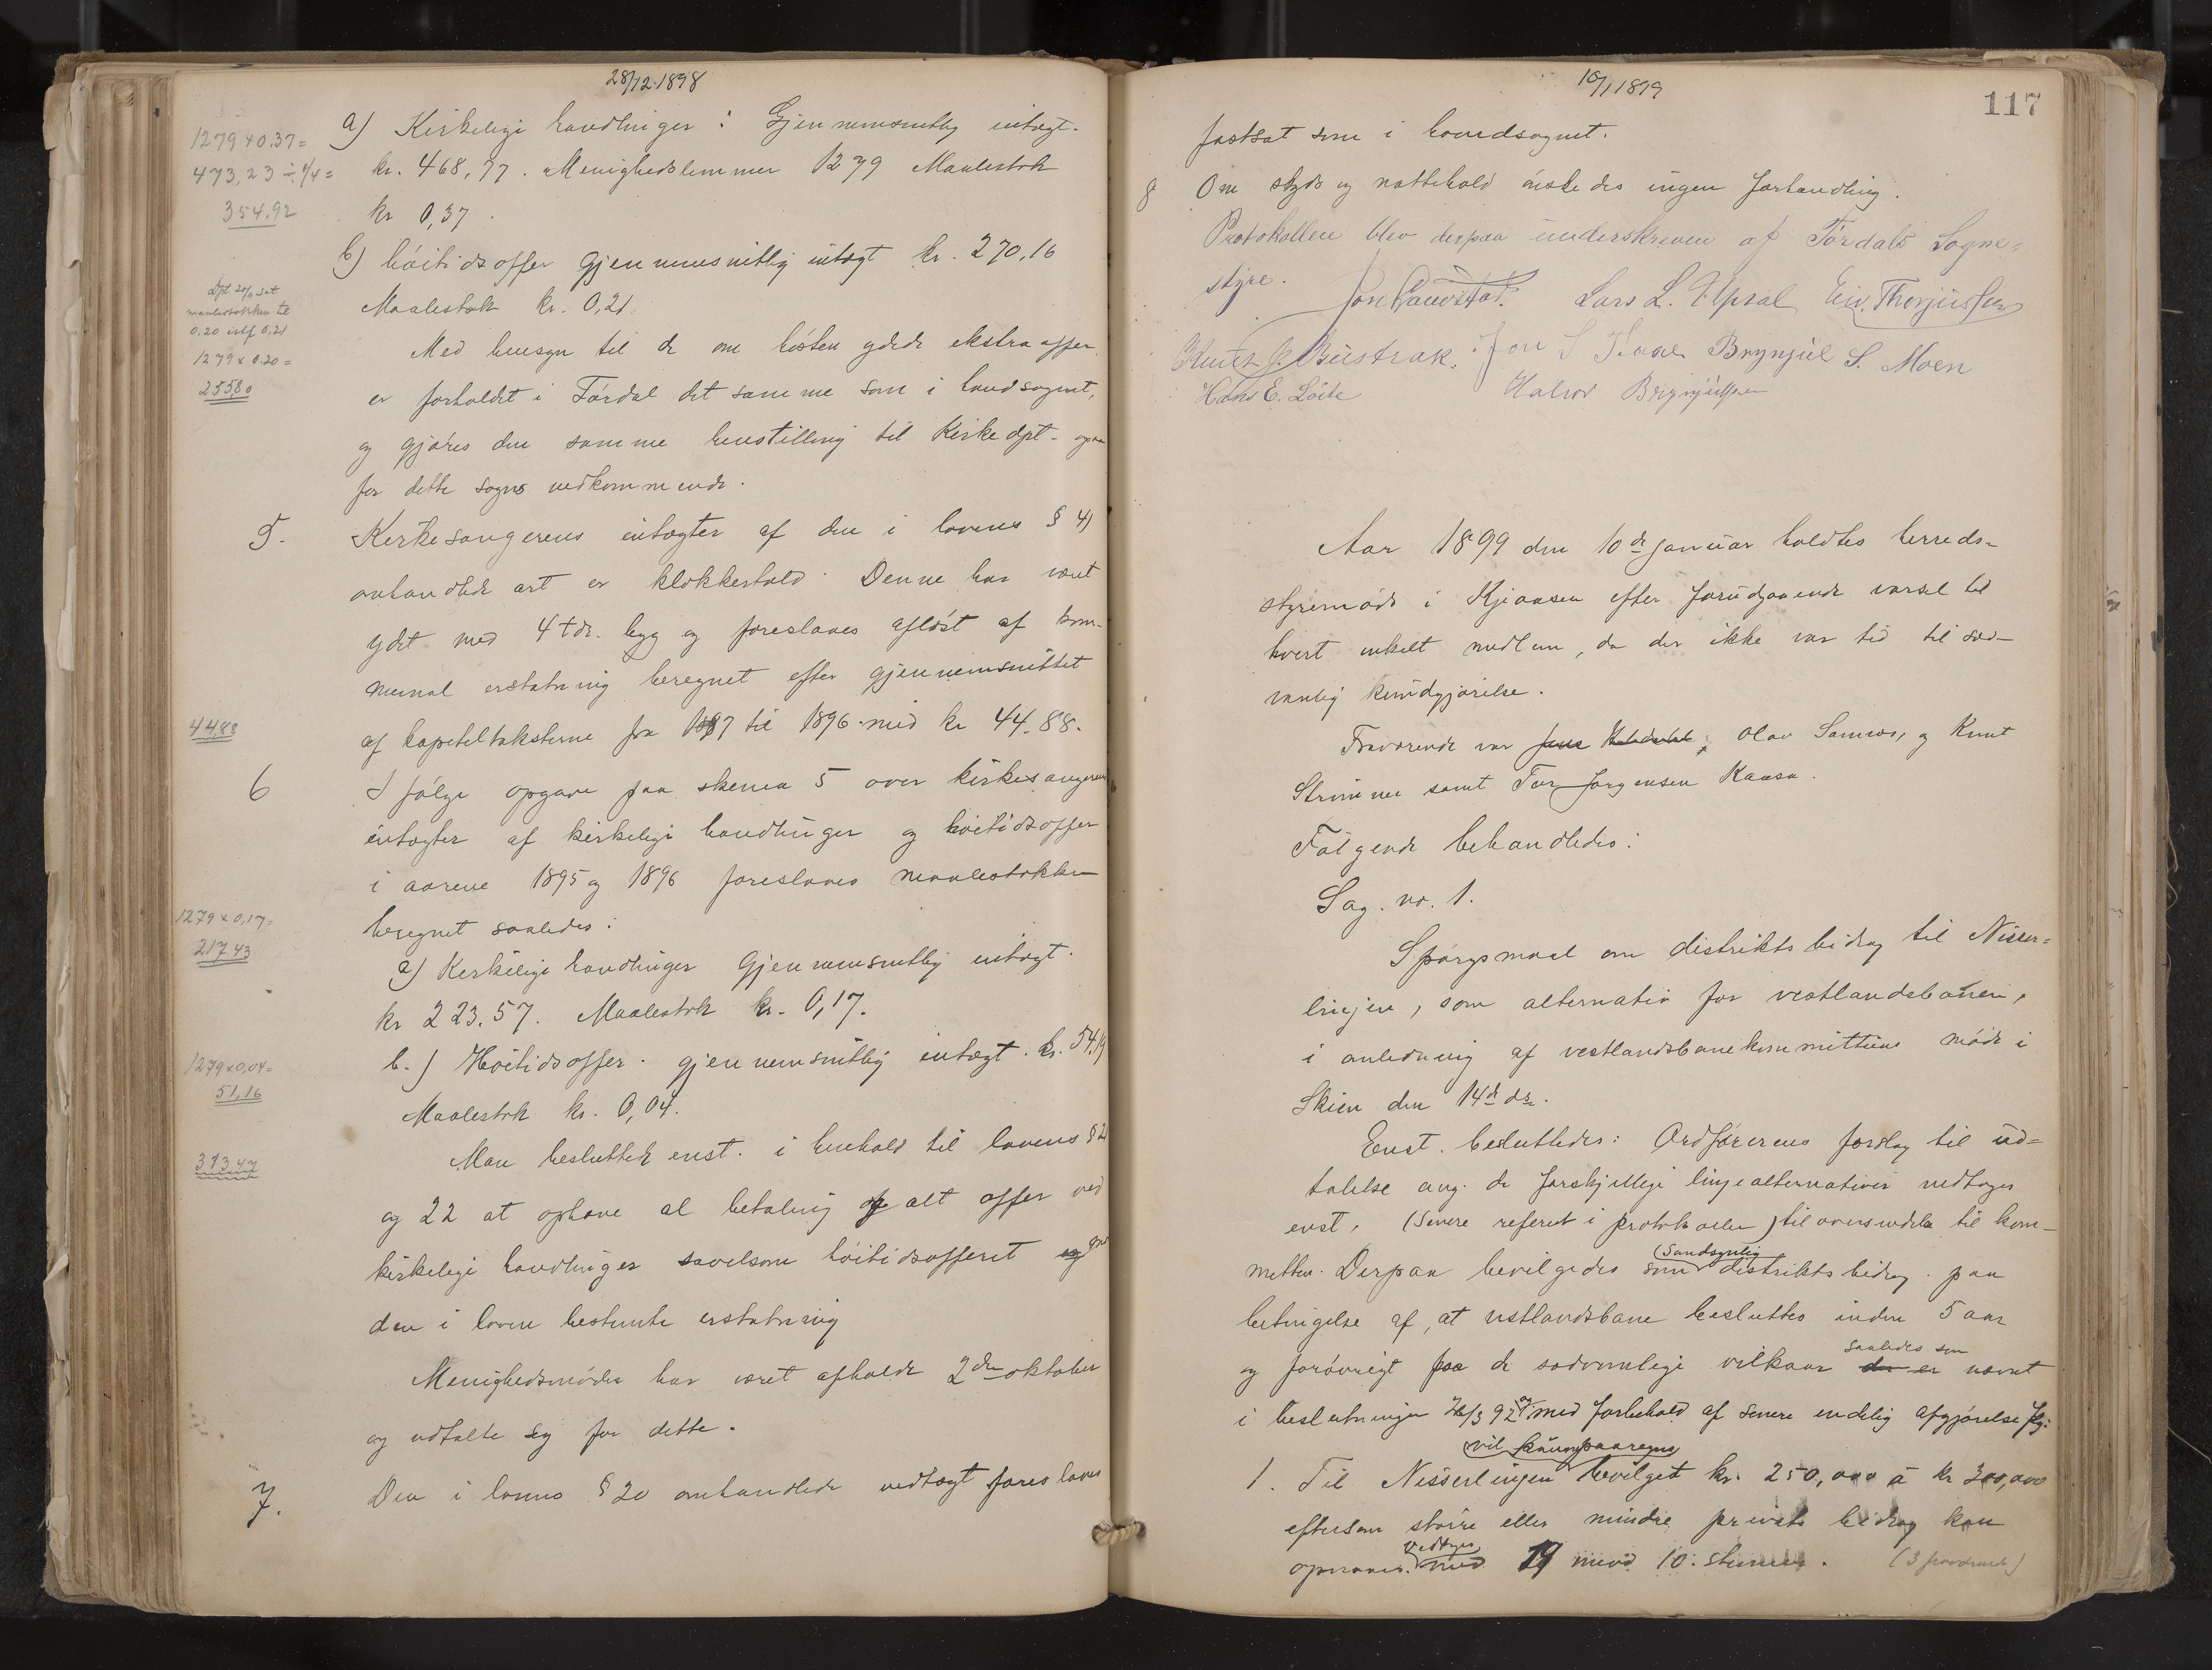 28/12.1898
a) Kirkelige handlinger: Gjennemsnitlig indtægt.
kr. 468,77. Menighedslemmer 1279 Maalestok
kr 0,37.
1279 x 0.37=
473,23 ÷ 1/4 =
354,92
b) høitidsoffer gjennemsnitlig indtægt kr. 270,16
Maalestok kr. 0,21.
Dpt sat
maalestokken til
0,20 istf 0,21
1279 x 0.20=
255.80
Med hensyn til de om høsten ydede ekstraoffer
er forholdet i Tørdal det samme som i landsognet,
og gjøres den samme henstilling til Kirkedpt. ogsaa
for dette sogns vedkommende.
5. Kirkesangerens indtægter af den i lovens § 41
omhandlede art er klokkertold. Denne har været
ydet med 4 tdr. byg og foreslaaes afløst af kom-
munal erstatning beregnet efter gjennemsnittet
af kapiteltaksterne fra 1887 til 1896 med kr 44.88.
44.88
6 I følge opgave paa skema 5 over kirkesangerens
indtægter af kirkelige handlinger og høitidsoffer
i aarene 1895 og 1896 foreslaaes maalestokken
beregnet saaledes:
1279 x 0,17=
217.43
a) Kirkelige handlinger Gjennemsnitlig indtægt.
kr 223.57. Maalestok kr. 0,17.
b.) Høitidsoffer. gjennemsnitlig indtægt. kr. 54,19
Maalestok kr. 0,04.
1279 x 0,04=
51,16
Man besluttede enst. i henhold til lovens § 21
og 22 at ophæve al betaling og alt offer ved
kirkelige handlinger savelsom høitidsofferet og
den i loven bestemte erstatning
313.47
Menighedsmøder har været afholdt 2den oktober
og udtalte seg for dette.
7. Den i lovens § 20 omhandlede vedtægt foreslaaes
10/1 1899
117
fastsat som i hovedsognet.
8 Om skyds og nattehold ønskedes ingen forhandling.
Protokollen blev derpaa underskreven af Tørdals Sogne-
styre.
Lars L. Upsal Eiv. Thorjussen
Brynjul S. Moen
Hans E. Löite Halvor Brynjulsen
Aar 1899 den 10de januar holdtes herreds-
styremøde i Kjiaasen efter forudgaaende varsel til
hvert enkelt medlem, da der ikke var tid til sæd-
vanlig kundgjørelse.
Fraværende var Olav Sannes, og Knut
Strømme samt Tor Jørgensen Kaasa.
Følgende behandledes:
Sag. no. 1.
Spørgsmaal om distriktsbidrag til Nisser-
linjen, som alternativ for vestlandsbanen,
i anledning af vestlandsbanekommitteens møde i
Skien den 14de ds.
Enst. besluttedes: Ordførerens forslag til ud-
talelse ang. de forskjellige linjealternativer vedtoges
enst. (Senere referet i protokollen) til oversendelse til kom-
mitteen. Derpaa bevilgedes som (Sandsynlig) distriktsbidrag paa
betingelse af, at vestlandsbane besluttes inden 5 aar
og forøvrigt paa de sedvanlige vilkaar der er saaledes som nævnt
i beslutningen 26/3 92 og med forbehold af senere endelig afgjørelse
1. Til Nisserlinjen vil kunne paaregnes bevilget kr. 250,000 à kr 300,000
eftersom større eller mindre private bidrag kan
opnaaes. vedtages med 19 mod 10. stemmer. (3 fraværende)